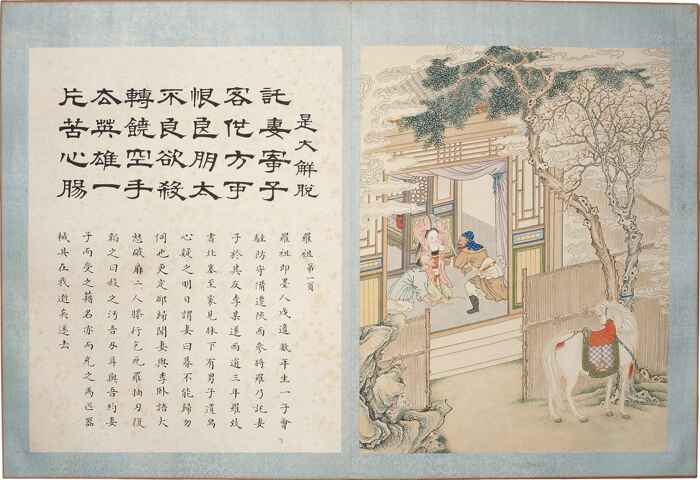 是大解脫
託妻寄子
客他方可
恨良朋太
不良欲殺
轉饒空手
去英雄一
片苦心腸
羅祖 第一頁
羅祖即墨人戍邊數年生一子會
駐防守備遷陝西參將羅乃託妻
子於其友李某遂西適三年羅致
書北塞至家見牀下有男子遺舄
心疑之明日謂妻曰暮不能歸勿
伺也更定卻歸聞妻與李臥語大
怒破扉二人膝行乞死羅抽刃復
韜之曰殺之污吾刀耳與吾約妻
子而受之籍名亦而充之馬匹器
械具在我逝矣遂去